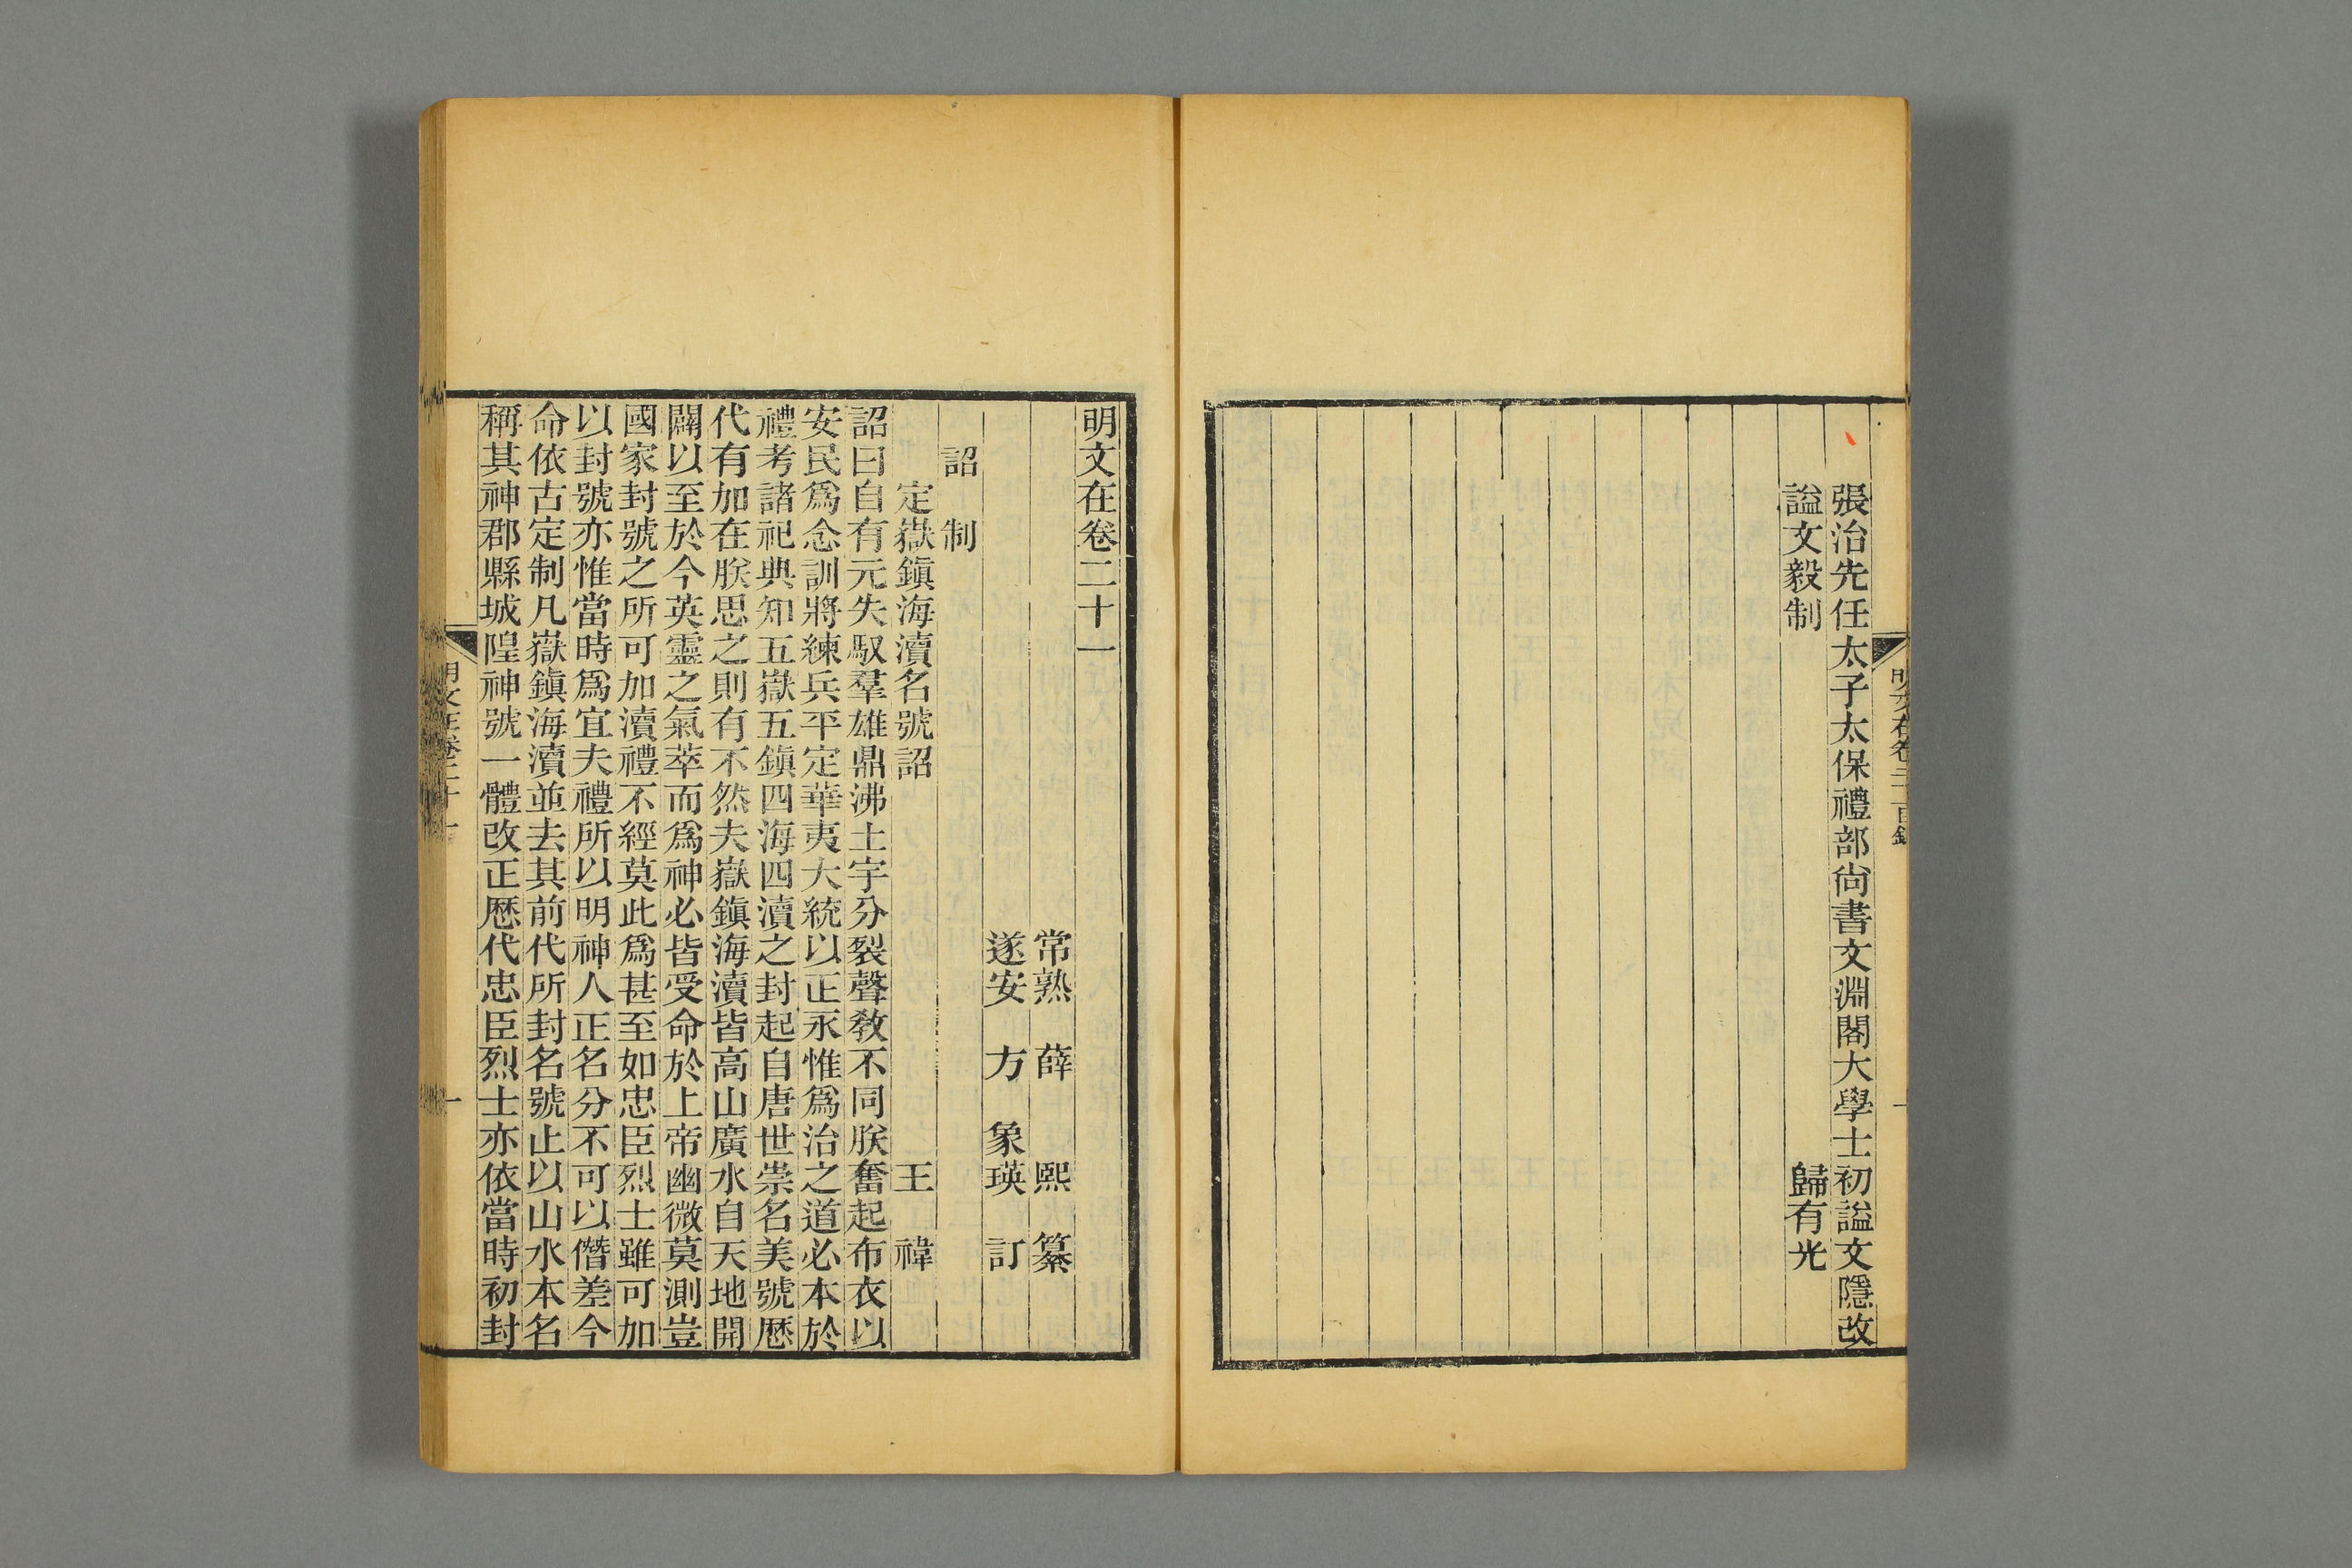 張治先任太子太保禮部尙書文淵閣大學士初謚文隱改
謚文毅制　歸有光
明文在卷二十一
常熟　薛　熙　纂
遂安　方　象瑛　訂
詔　制
定嶽鎭海瀆名號詔　王　禕
詔曰自有元失馭羣雄鼎沸土宇分裂聲敎不同朕奮起布衣以
安民爲念訓將練兵平定華夷大統以正永惟爲治之道必本於
禮考諸祀典知五嶽五鎭四海四瀆之封起自唐世崇名美號歷
代有加在朕思之則有不然夫嶽鎭海瀆皆高山廣水自天地開
闢以至於今英靈之氣萃而爲神必皆受命於上帝幽微莫測豈
國家封號之所可加瀆禮不經莫此爲甚至如忠臣烈士雖可加
以封號亦惟當時爲宜夫禮所以明神人正名分不可以僭差今
命依古定制凡嶽鎭海瀆並去其前代所封名號止以山水本名
稱其神郡縣城隍神號一體改正歷代忠臣烈士亦依當時初封